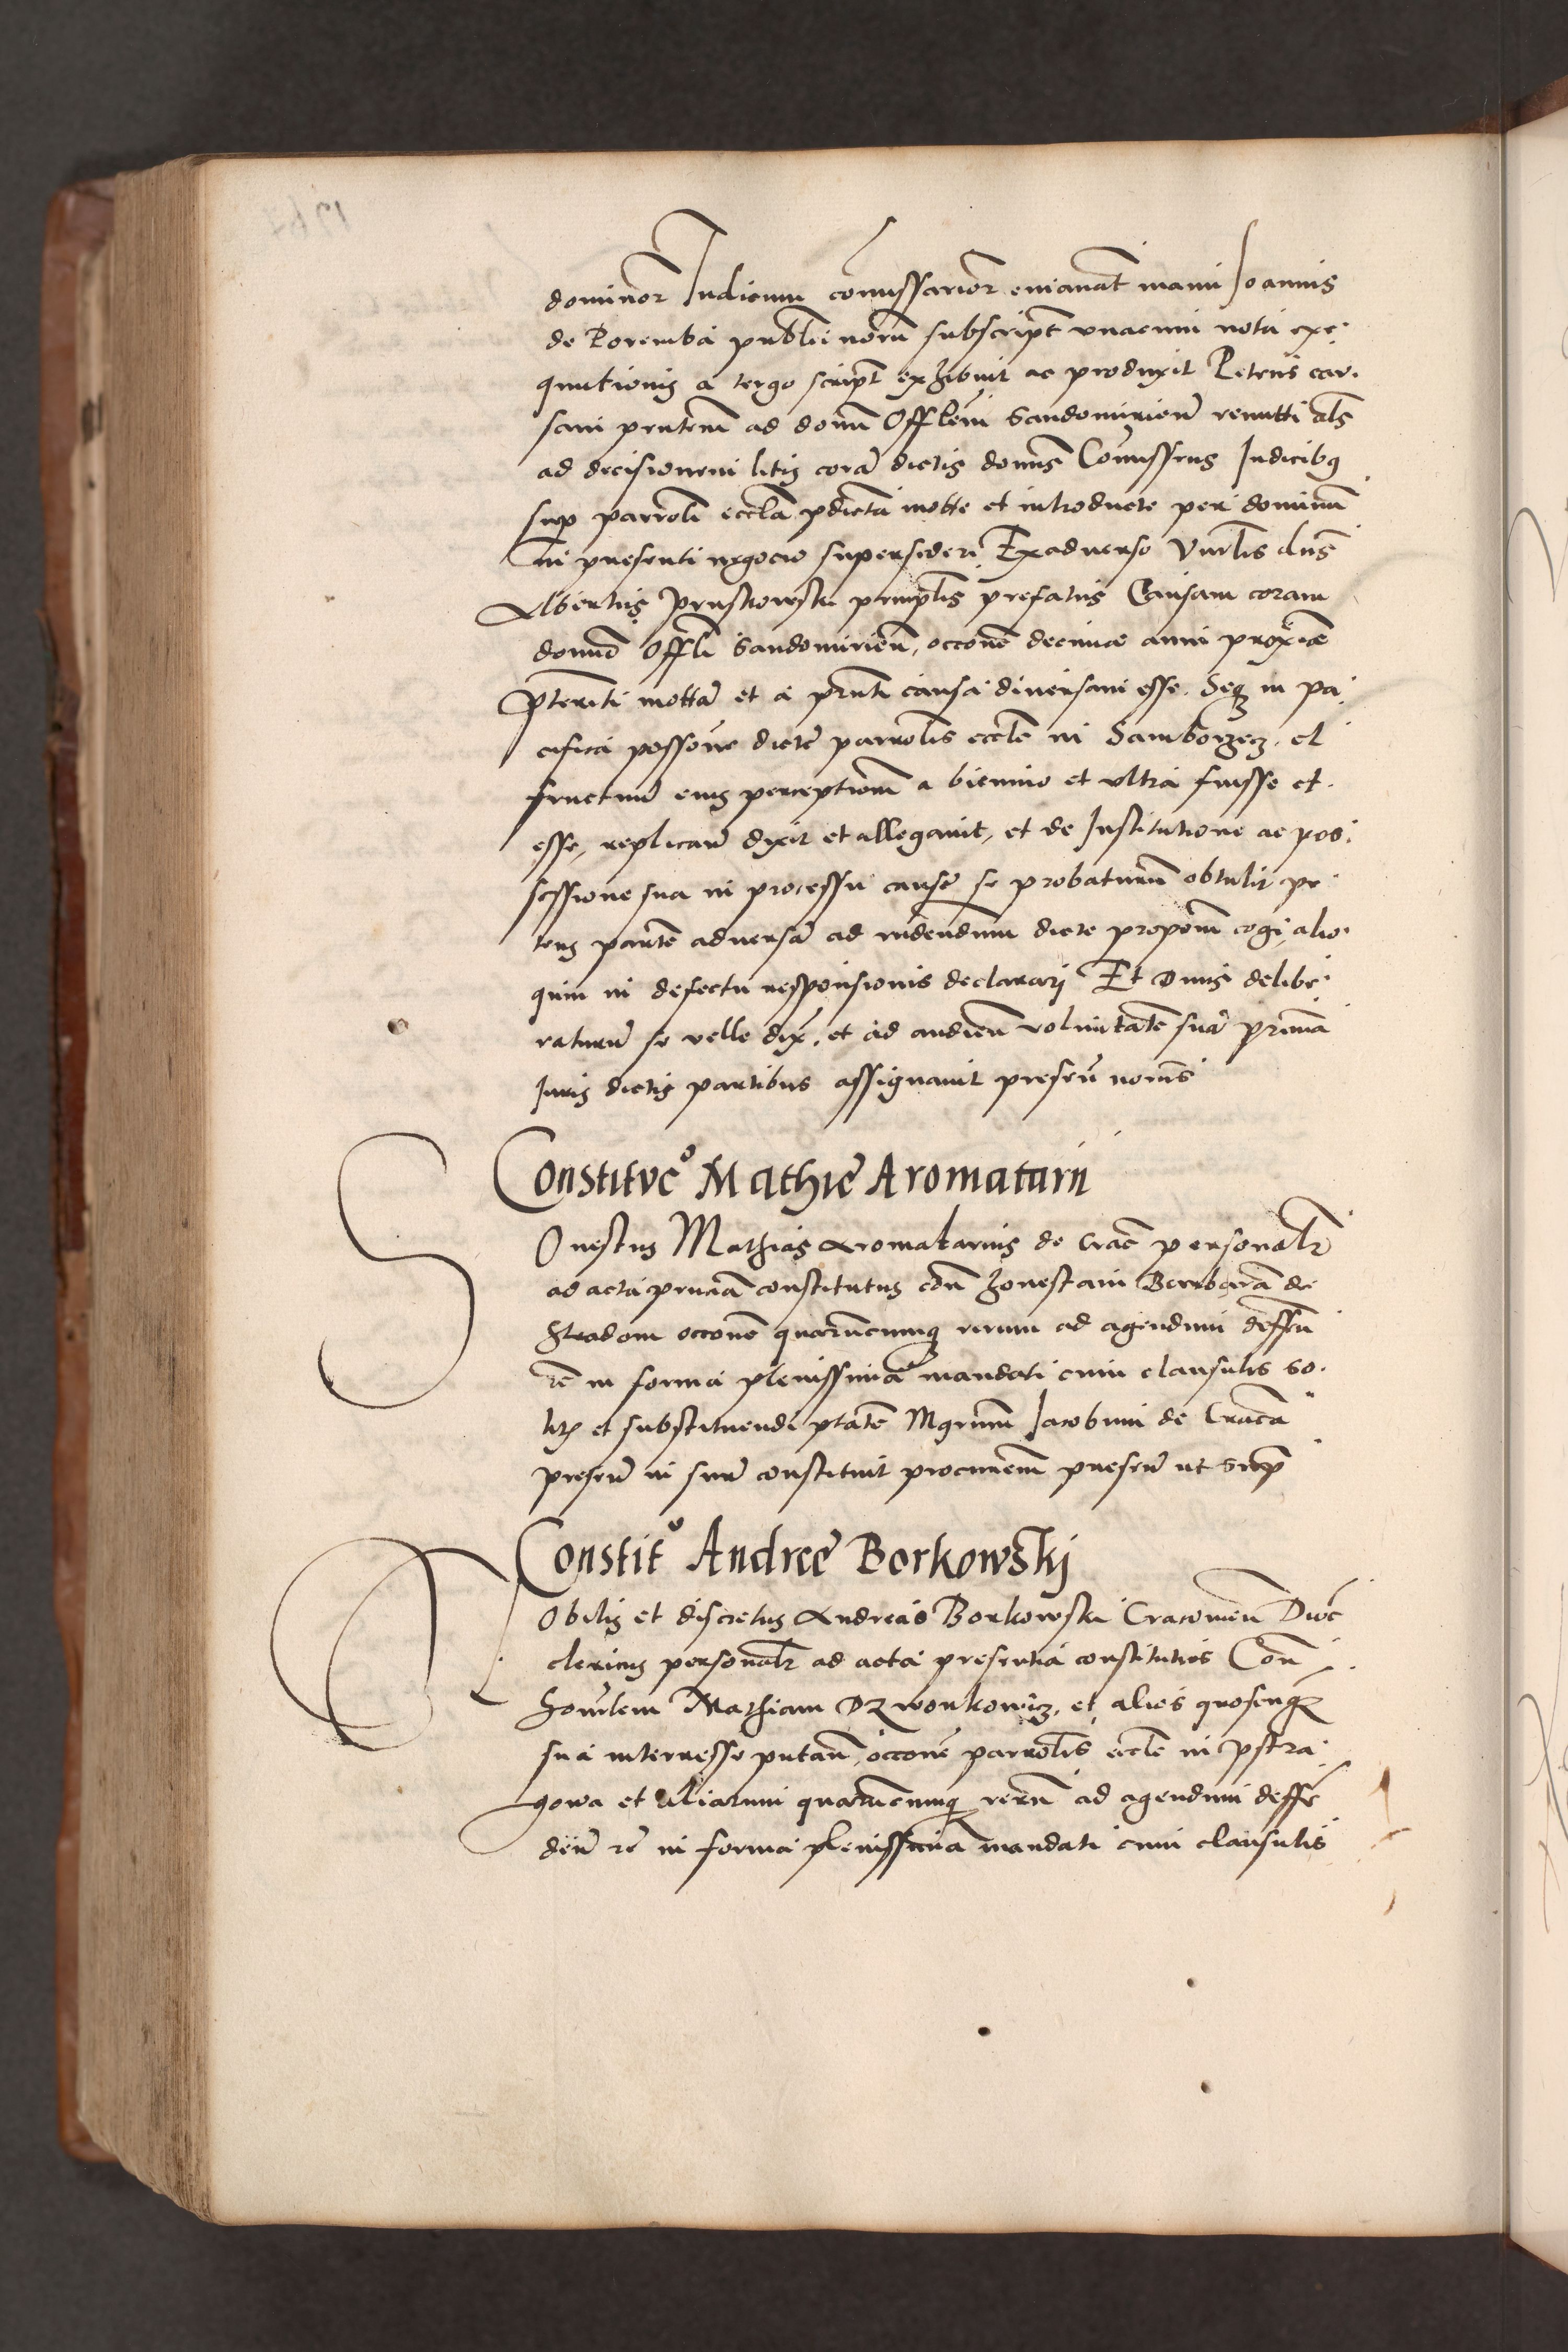 dominor Iudicum comissarior emanat manu Ioannis
de Poremba publici notarii subscript vnacum nota exe
qnutionis a tergo script exhibuit ac produxit Petens cau
sam pntem ad domn Offlem Sandomirien remitti als
ad decisionem litis cora dictis domis Comissrys Iudicibus
sup parrolj ecclia pdicta motte et introducte per dominum
in presenti negocio supersideri Exaduerso Vnrlis dns
Albertus Pruskowski principlis prefatus Causam coram
domno Offli Sandomirien, occone decimae anni proxie
pteriti motta et a pnti causa diuersam esse. Seqz in pa
cifica possone dicte parrolis ecclie in Samborzecz. et
fructuu eius perceptionem a biennio et vltra fuisse et
esse, replicam dixit et allegauit, et de Institutione ac pos
sessione sua in processu cause se probaturum obtulit pe
tens parte aduersa ad rndendum dicte propom cogi, alio
quin in defectu responsionis declararj Et Dnus delibe
raturu se velle dix. et ad audien voluntate sua prima
Iuris dictis partibus assignauit presen nomis
Constituco Mathie Aromatarii
Onestus Mathias Aromatarius de Crac personalr
ad acta pncia constitutus con honestam Barbaram de
Stradom occone quarucumq rerum ad agendum deffen
re in forma plenissima mandati cum clausulis so
litis et substituendi ptate Mgrum Iacobum de Craca
presen in suu constituit procurem presen ut sup
Constito Andree Borkowskj
N Obilis et discretus Andreas Borkowski Cracouien Dioc
clericus personalr ad acta presentia constitutus Con
honlem Mathiam Dzwonkowicz, et alios quoscunqz
sua interresse putan, occone parrolis ecclie in pstra
gowa et aliarum quarucumq reru ad agendum deffe
den re in forma plenissima mandati cum clausulis